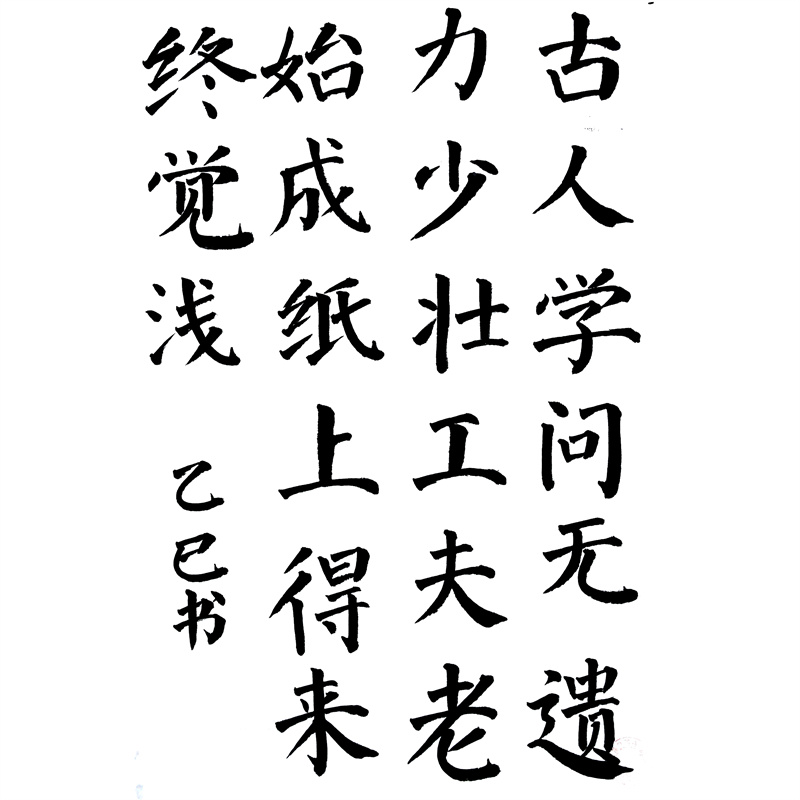 古人学问无遗
力少壮工夫老
始成纸上得来
终觉浅
乙巳书